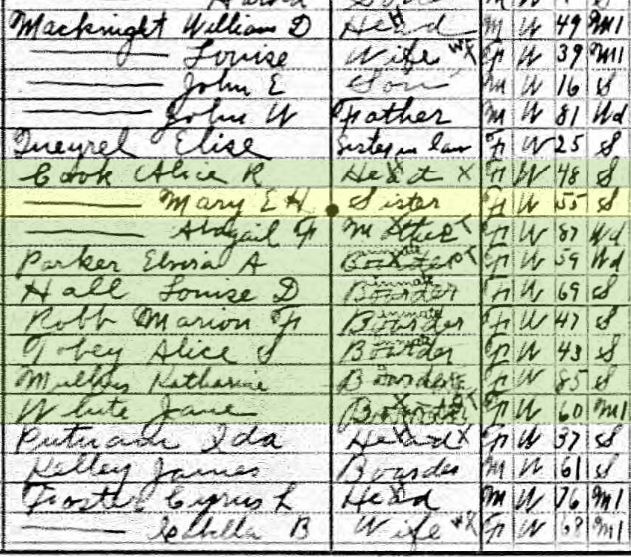 Macknight William D Head M W 49 M1
Louise Wife F W 39 M1
John E Son M W 16 S
John W Father M W 81 Wd
Queyrel Elise Sister in law F W 25 S
Cook Alice R Head X F W 48 S
Mary E H Sister F W 55 S
Abigail F Mother F W 87 Wd
Parker Elvira A F W 59 Wd
Hall Louise D Boarder inmate F W 69 S
Robb Marion F Boarder inmate F W 47 S
Tobey Alice Boarder inmate F W 43 S
Katharine Boarder F W 85 S
White Jane Boarder F W 60 M1
Putnam Ida Head X F W 37 S
Kelley James Boarder M W 61 S
Foster Cyrus L Head M W 76 M1
Isabella B Wife F W 68 M1